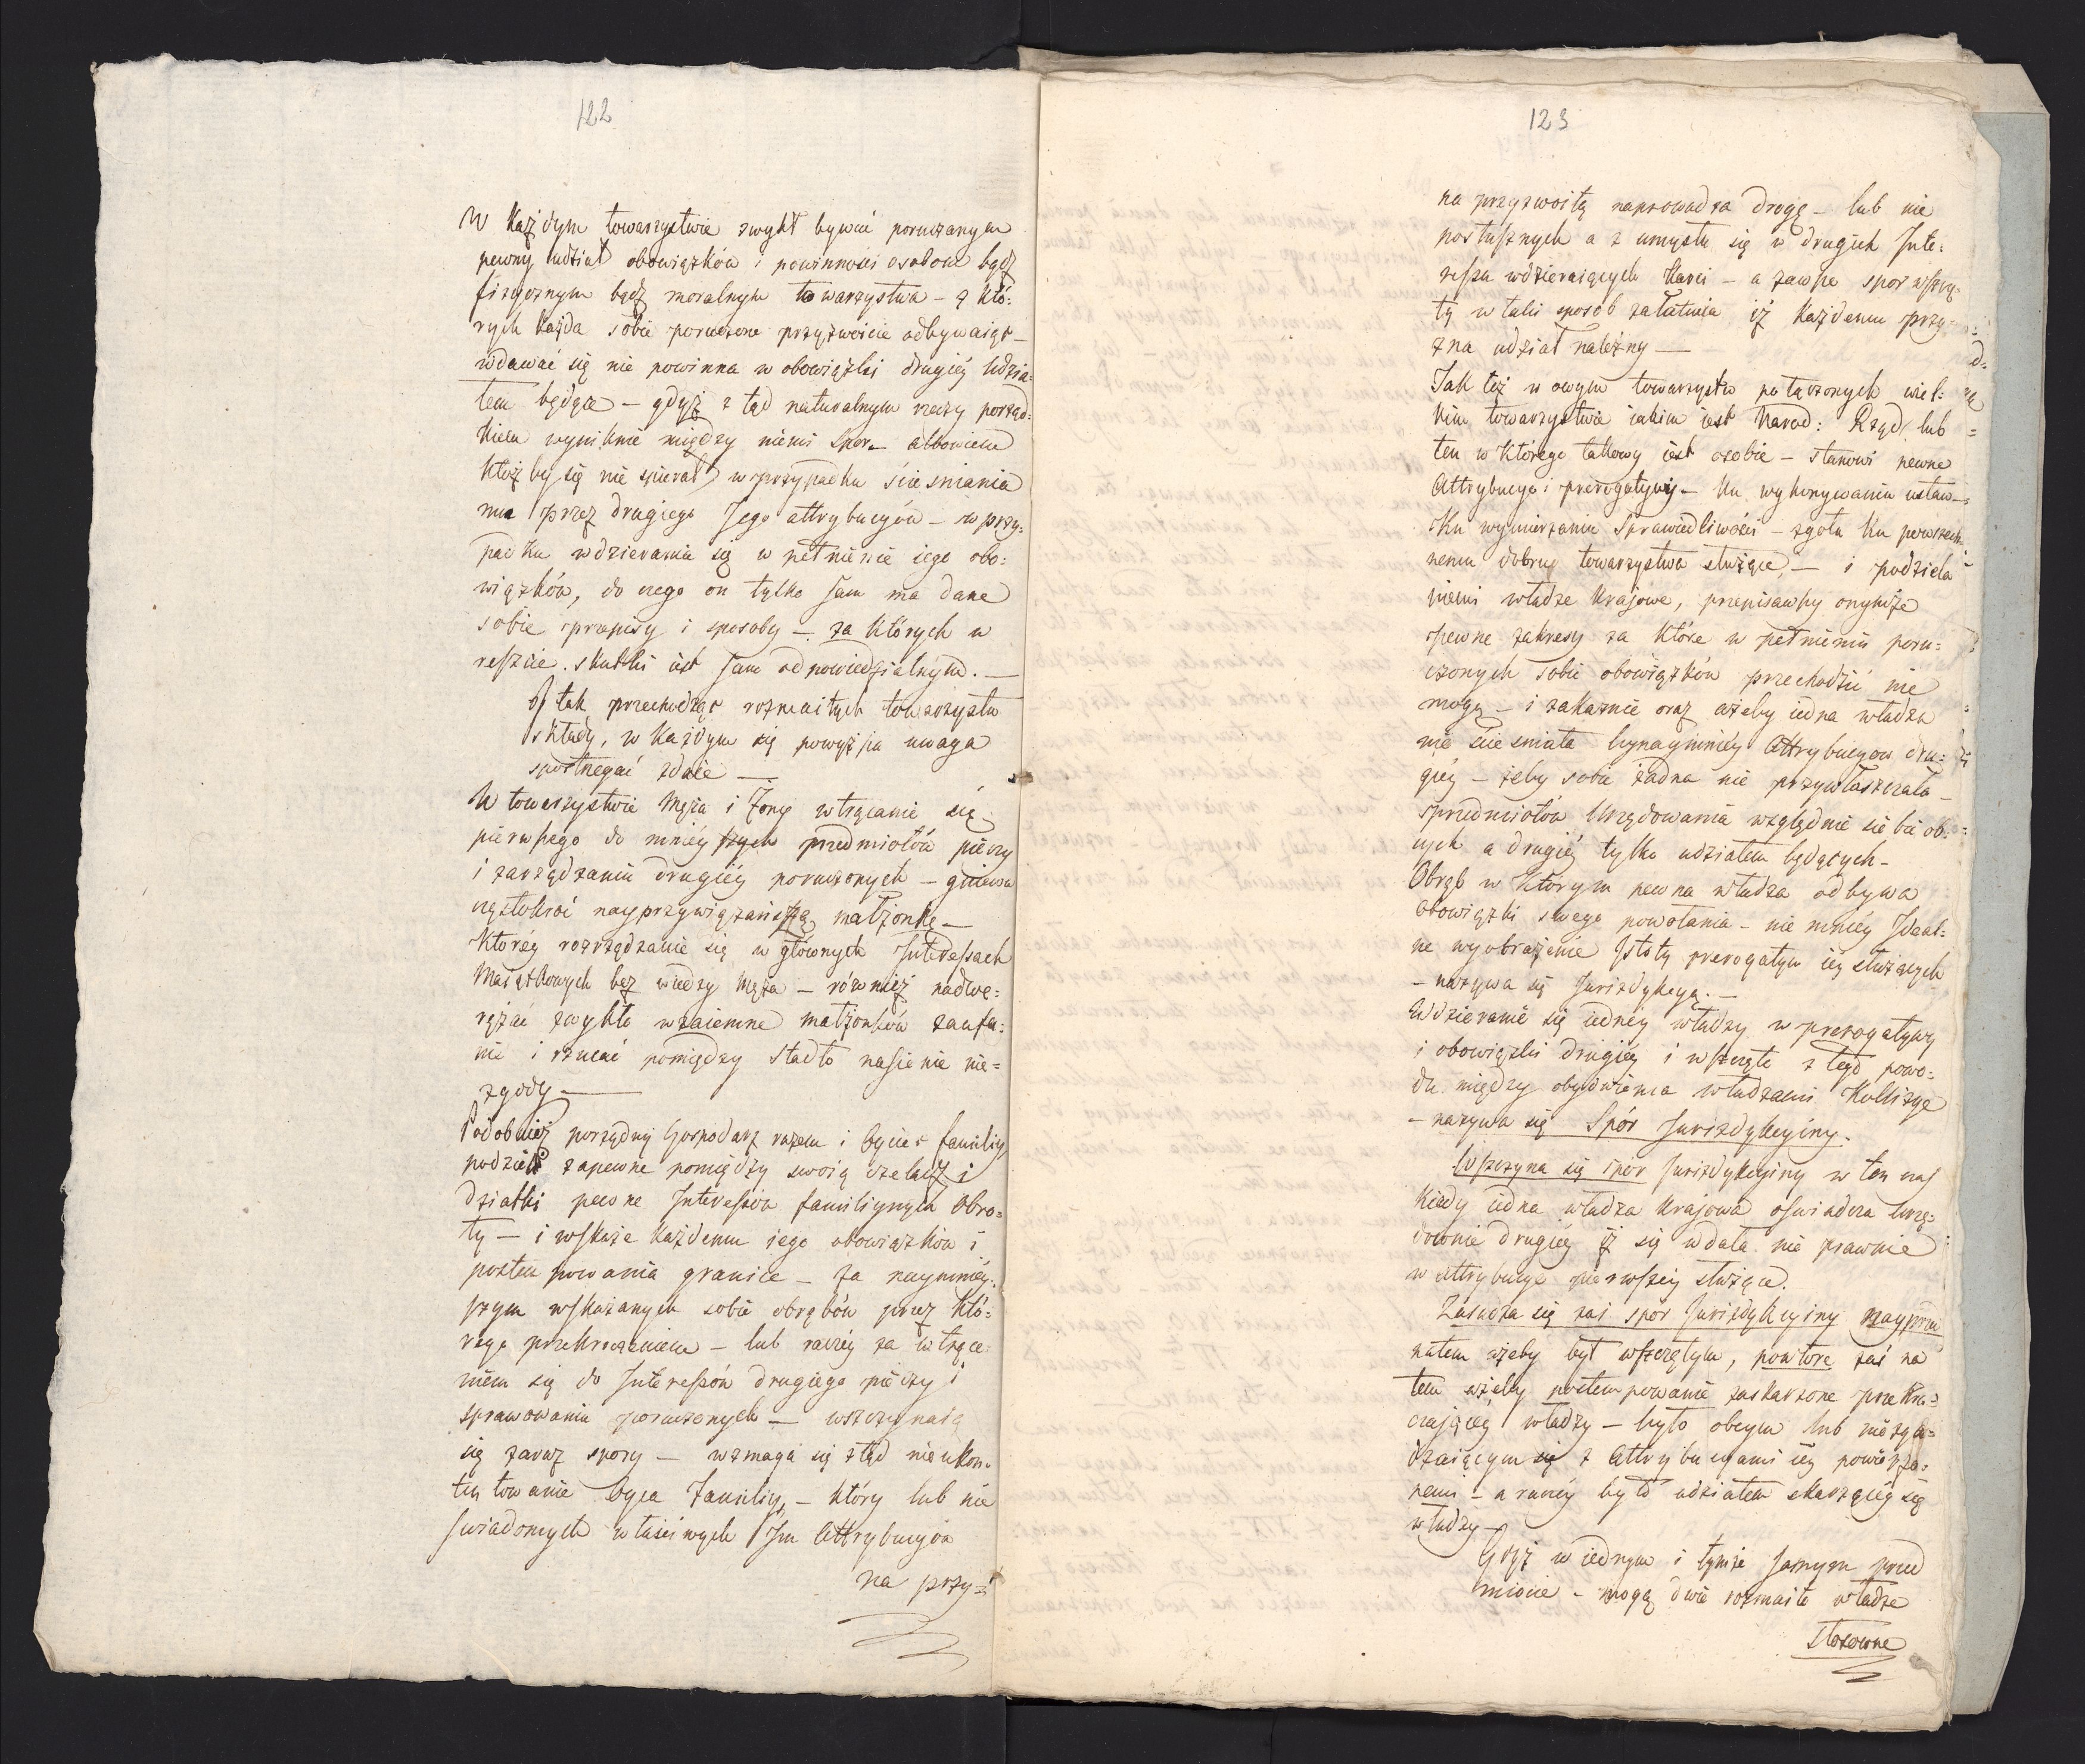 122
W każdym towarzystwie zwykł bywać poruczanym
pewny udział obowiązków i powinności osobom bądź
fizycznym bądź moralnym towarzystwa – z któ:
rych każda sobie poruczone przyzwoicie odbywaiąc –
wdawać się nie powinna w obowiązki drugiéy udzia:
łem będące – gdyż z tąd naturalnym rzeczy porząd:
kiem wyniknie między niemi spor – albowiem
któż by się nie spierał w przypadku ście śniania
mu przez drugiego Jego attrybucyów – w przy:
padku wdzierania się w pełnienie iego obo:
wiązków, do czego on tylko sam ma dane
sobie przepisy i sposoby – za których w
reszcie skutki iest sam odpowiedzialnym. –
I tak przechodząc rozmaitych towarzystw
składy, w każdym się powyższa uwaga
spostrzegać zdaie –
W towarzystwie Męża i Żony wtrącanie się
pierwszego do mnieyszych przedmiotów pieczy
i zarządzaniu drugiéy poruczonych – gniewa
częstokroć nayprzywiązańszą małżonkę –
któréy rozrządzanie się w głównych Interessach
Maiątkowych bez wiedzy męża – również nadwe:
rężać zwykło wzaiemne małżonków zaufa:
nie i rzucać pomiędzy stadło nasienie nie=
zgody –
Podobnież porządny Gospodarz razem i Oyciec familiy
podzieli zapewne pomiędzy swoią czeladź i
dziatki pewne Interessów familiynych obro=
ty – i wskaże każdemu iego obowiązków i
postempowania granice – za naymniéy:
szym wskazanych sobie obrębów przez któ:
rego przekroczeniem – lub raczéy za wtrące
niem się do Interessów drugiego pieczy i
sprawowaniu poruczonych – wszczynaią
się zaraz spory – wzmaga się ztąd nieukon:
tentowanie Oyca Familiy, – który lub nie
świadomych właściwych Im Attrybucyów
na przy=
123
na przyzwoitą naprowadza drogę – lub nie
posłusznych a z umysłu się w drugich Inte:
ressa wdzieraiących karci – a zawsze spor wszczę:
ty w taki sposób załatwia iż każdemu przy=
zna udział należny –
Jak też w owym towarzystw połączonych wiel:
kim towarzystwie iakim iest Narod: Rząd lub
ten w którego takowy iest osobie – stanowi pewne
Attrybucye i prerogatywy – ku wykonywaniu ustaw –
ku wymierzaniu Sprawiedliwości – zgoła ku powszech:
nemu dobru towarzystwa służące, – i podziela
niemi władze krajowe, przepisawszy onymże
pewne zakresy za które w pełnieniu poru=
czonych sobie obowiązków przechodzić nie
mogą – i zakaznie oraz ażeby iedna władza
nie ście śniała bynaymniéy Attrybucyow dru:
giéy – żeby sobie żadna nie przywłaszczała –
przedmiotów Urzędowania względnie siebie ob:
cych a drugiéy tylko udziałem będących –
Obręb w którym pewna władza odbywa
obowiązki swego powołania – nie mniéy Ideal:
ne wyobrażenie Istoty prerogatyw iéy służących
– nazywa się Jurizdykcyą. –
Wdzieranie się iednéy władzy w prerogatywy
i obowiązki drugiéy i wszczęte z tąd powo:
du między obydwiema władzami Kollizye
– nazywa się Spór Jurizdykcyiny.
Wszczyna się spór Jurizdykcyiny w ten czas
kiedy iedna władza krajowa oświadcza urzę:
downie drugiéy iż się wdała nie prawnie
w Attrybucye pierwszéy służące.
Zasadza się zaś spor Jurizdykcyiny nayprzod
natem ażeby był wszczętym, powtore zaś na
tem ażeby postempowanie zaskarzone przekra=
czaiącéy władzy – było obcym lub niezga=
dzaiącym się z Attrybucyami iéy powierzo:
nemi – a raczéy było udziałem skarżącéy się
władzy –
Gdyż w iednym i tymże samym przed
miocie – mogą dwie rozmaite władze
stosowne